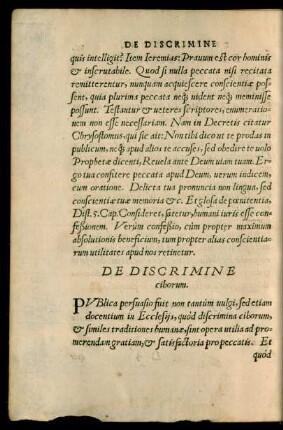 DE DISCRIMINE
quis intelligit? Item Ieremias: Prauum est cor hominis
& inscrutabile. Quod si nulla peccata nisi recitata
remitterentur, nunquam acquiescere conscientiæ pos
sent, quia plurima peccata neq; uident neq; meminisse
possunt. Testantur & ueteres scriptores, enumeratio-
nem non esse necessariam. Nam in Decretis citatur
Chrysostomus, qui sic ait: Non tibi dico ut te prodas in
publicum, neq; apud alios te accuses, sed obedire te uolo
Prophetæ dicenti, Reuela ante Deum uiam tuam. Er-
go tua confitere peccata apud Deum, uerum iudicem,
cum oratione. Delicta tua pronuncia non lingua, sed
conscientiæ tuæ memoria &c. Et glosa de pœnitentia,
Dist. 5. Cap. Consideret, fatetur, humani iuris esse con-
fessionem. Verùm confessio, cùm propter maximum
absolutionis beneficium, tum propter alias conscientia-
rum utilitates apud nos retinetur.
DE DISCRIMINE
ciborum.
PVBlica persuasio fuit non tantùm uulgi, sed etiam
docentium in Ecclesijs, quòd discrimina ciborum,
& similes traditiones humanæ, sint opera utilia ad pro-
merendam gratiam, & satisfactoria pro peccatis. Et
quòd